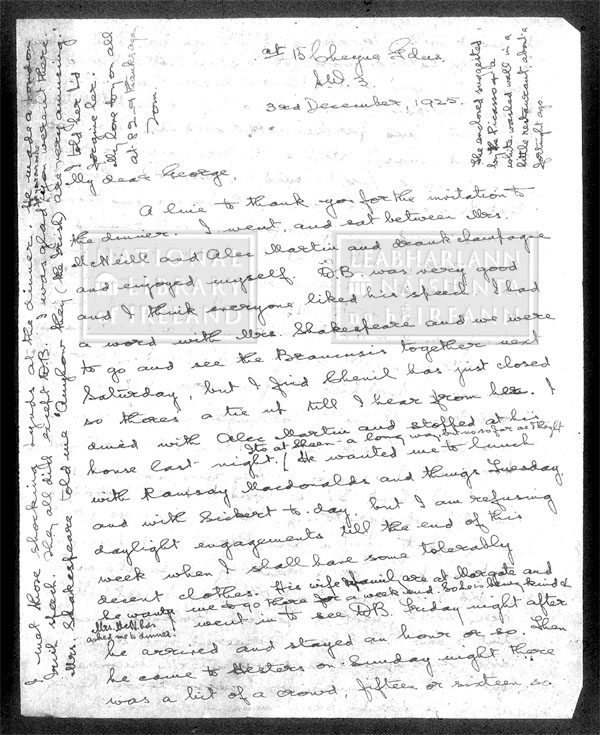 at 15 Cheyne Gdns
S.W. 3
3rd December, 1925.
My dear George
A line to thank you for the invitation to
the dinner. I went, and sat between Mrs.
McNeill and Alec Martin and drank champagne
and enjoyed myself. D.B. was very good
and I think everyone liked his speech. I had
a word with Mrs. Shakespeare and we were
to go and see the together next
Saturday, but I find Chenil has just closed
so theres a tie up till I hear from her. I
dined with Alec Martin and stopped at his
house last night. / Its at Sheen - a long way, but no so far as I thought
He wanted me to lunch
with Ramsay Macdonalds and things Tuesday.
and with Sickert to day. but I am refusing
daylight engagements till the end of this
week when I shall have some tolerably
decent clothes. His wife family are at Margate and
he wants me to go there for a week end. being kind &
Mrs. McN. has
asked me to dinner.
I went in to see D.B. Friday night after
he arrived and stayed an hour or so. Then
he came to Hesters on Sunday night. There
was a bit of a crowd, fifteen or sixteen so
The enclosed suggested
by the Picassos & a
white washed wall in a
little restaurant, about a
fortnight ago.
met those shocking at the dinner. He made a
speech. They all did except D.B. I was glad you weren't there.
Mrs. Shakespeare told me "Anyhow they (the Irish) are very amusing."
I told her I'd
forgive her.
My love to you all
at 82 & thanks again
Tom.
NATIONAL
LIBRARY
IRELAND
LEABHARLANN
NÁISIÚN
na hÉIREANN